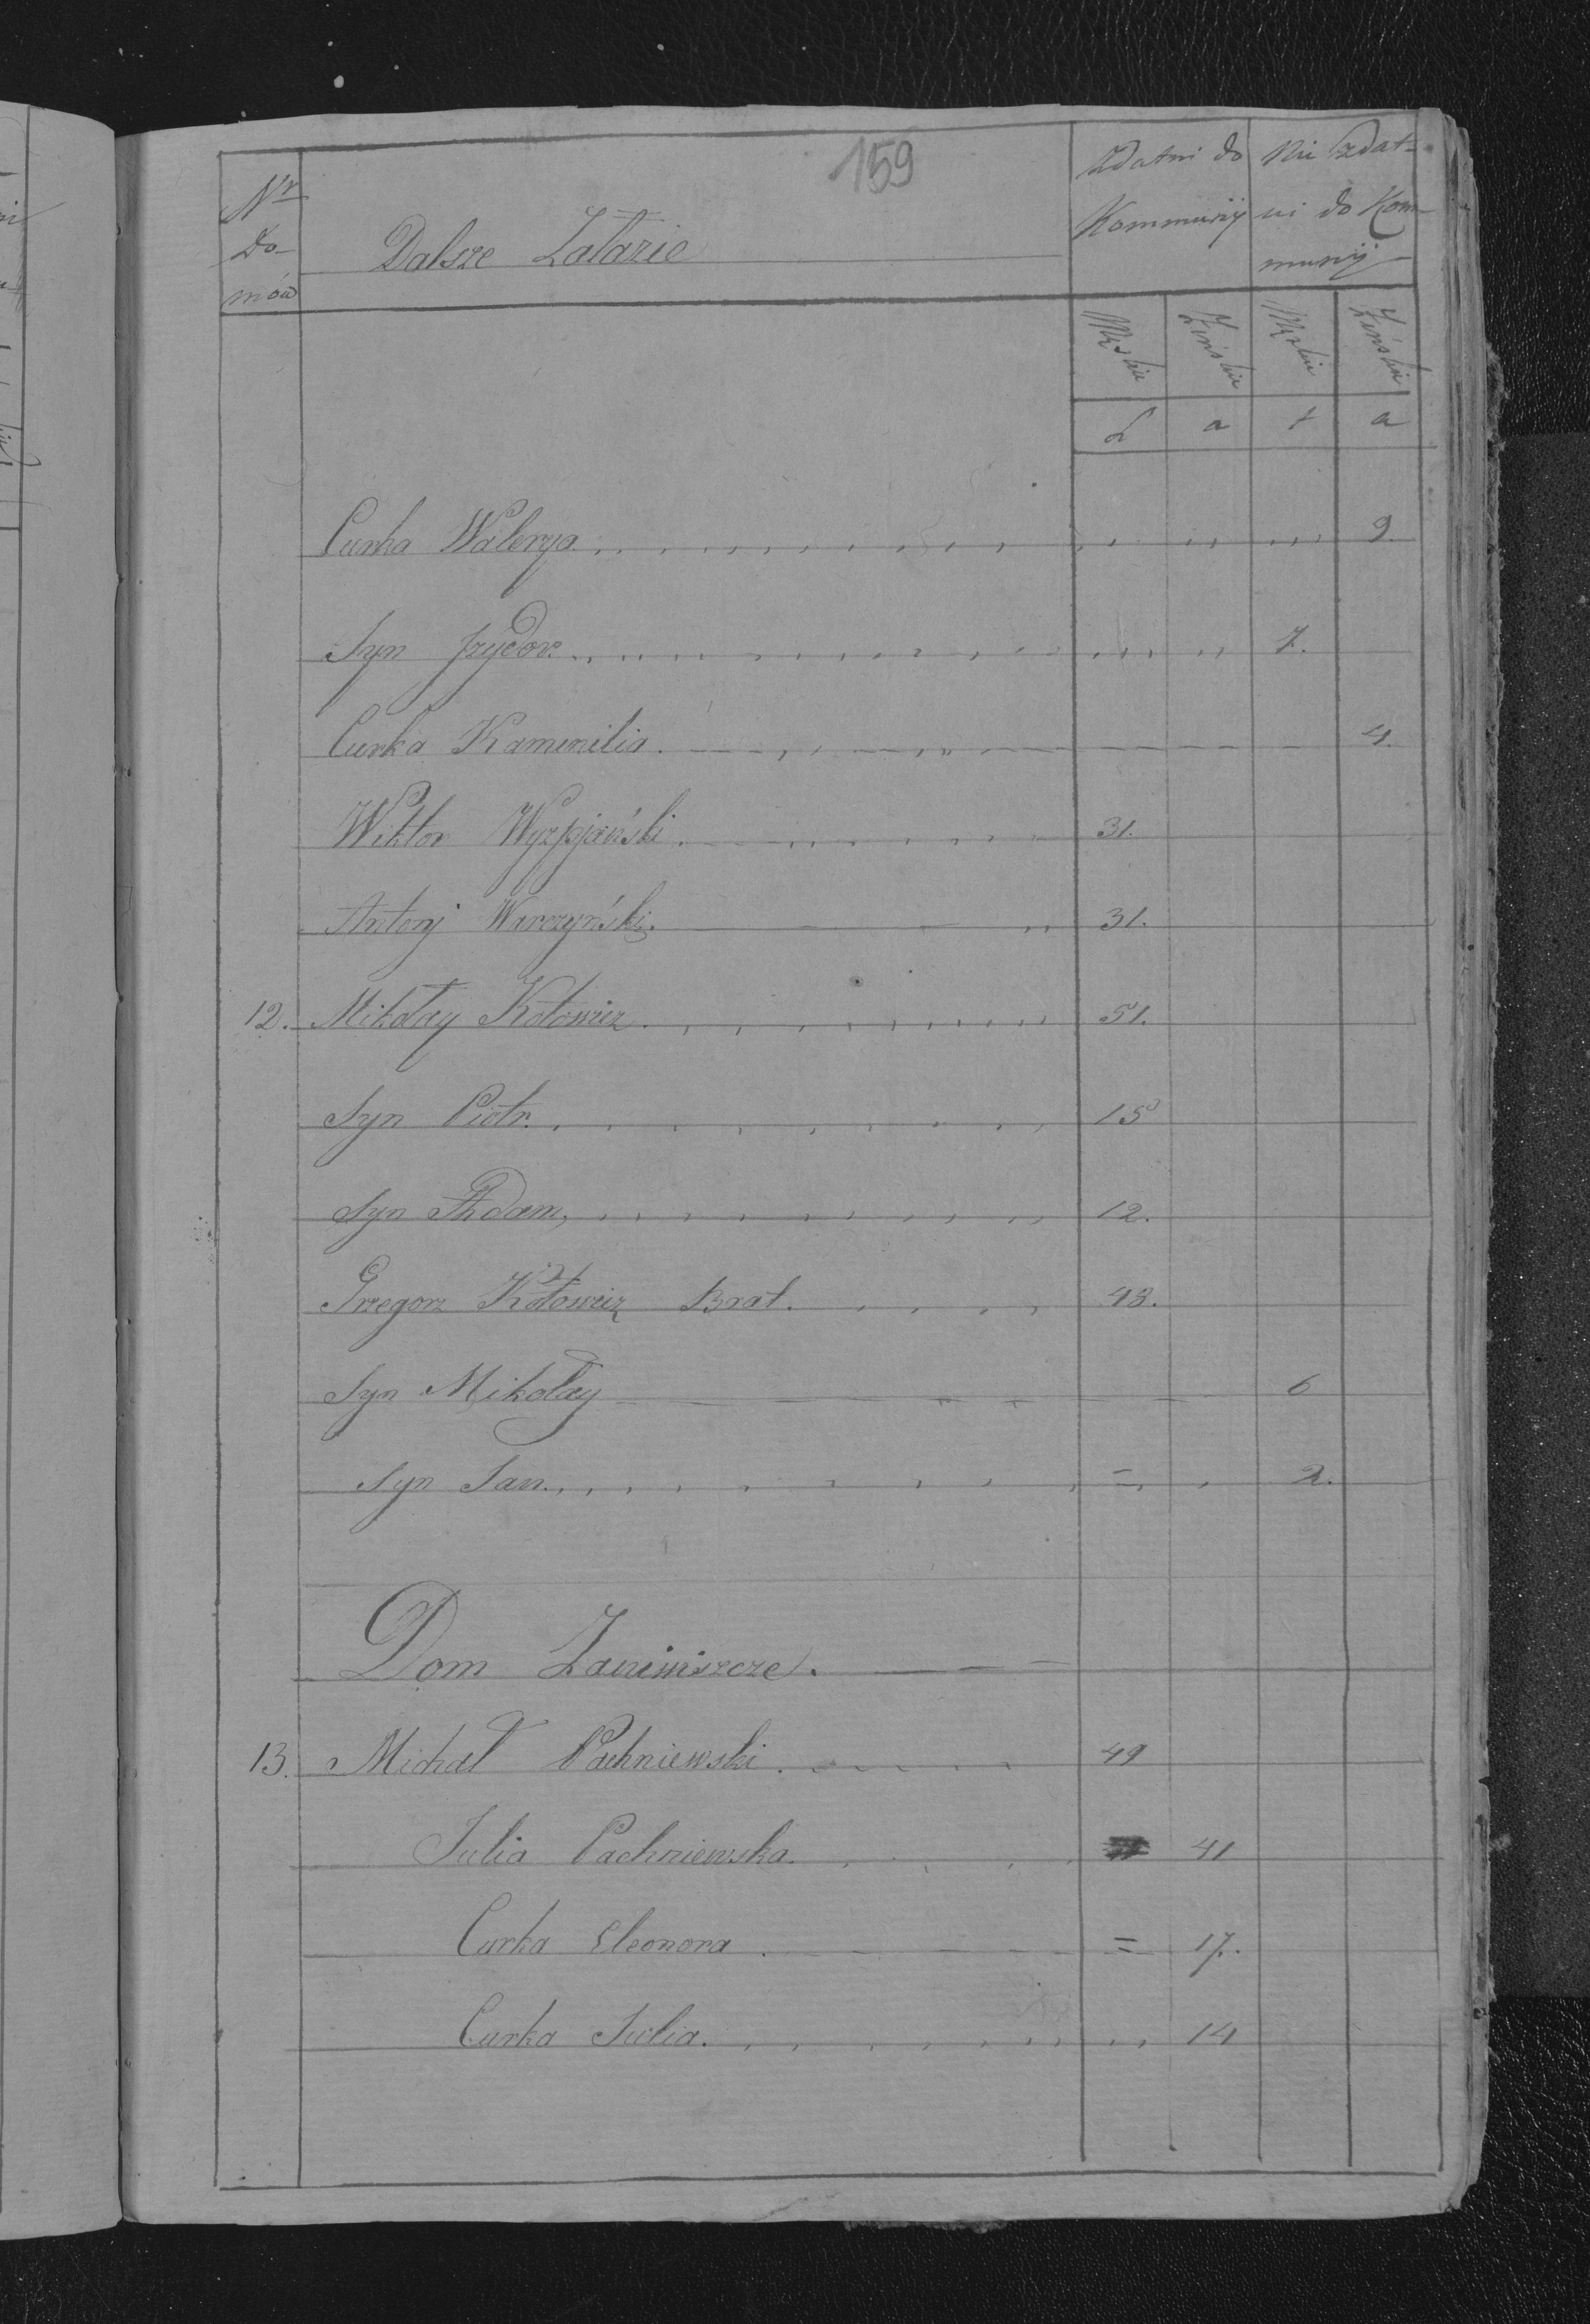 159
Nr Domów
Dalsze Zatazie
Zdatni do Kommunij
Nie zdatni do Kommunij
Męskie Żeńskie Męskie Żeńskie
L a t a
Curka Walerya 9.
Syn Jzydor 7.
Curka Kamenilia. 4.
Wiktor Wyzpjański. 31.
Antonj Warczyński. 31.
12. Mikołay Kołowicz. 51.
Syn Piotr. 15
Syn Adam, 12.
Grzegorz Kołowicz Brat. 43.
Syn Mikołay 6
Syn Jan. = 2.
Dom
13. Michał Pachniewski. 49
Julia Pachniewska. 41
Curka Eleonora. = 17.
Curka Julia. 14